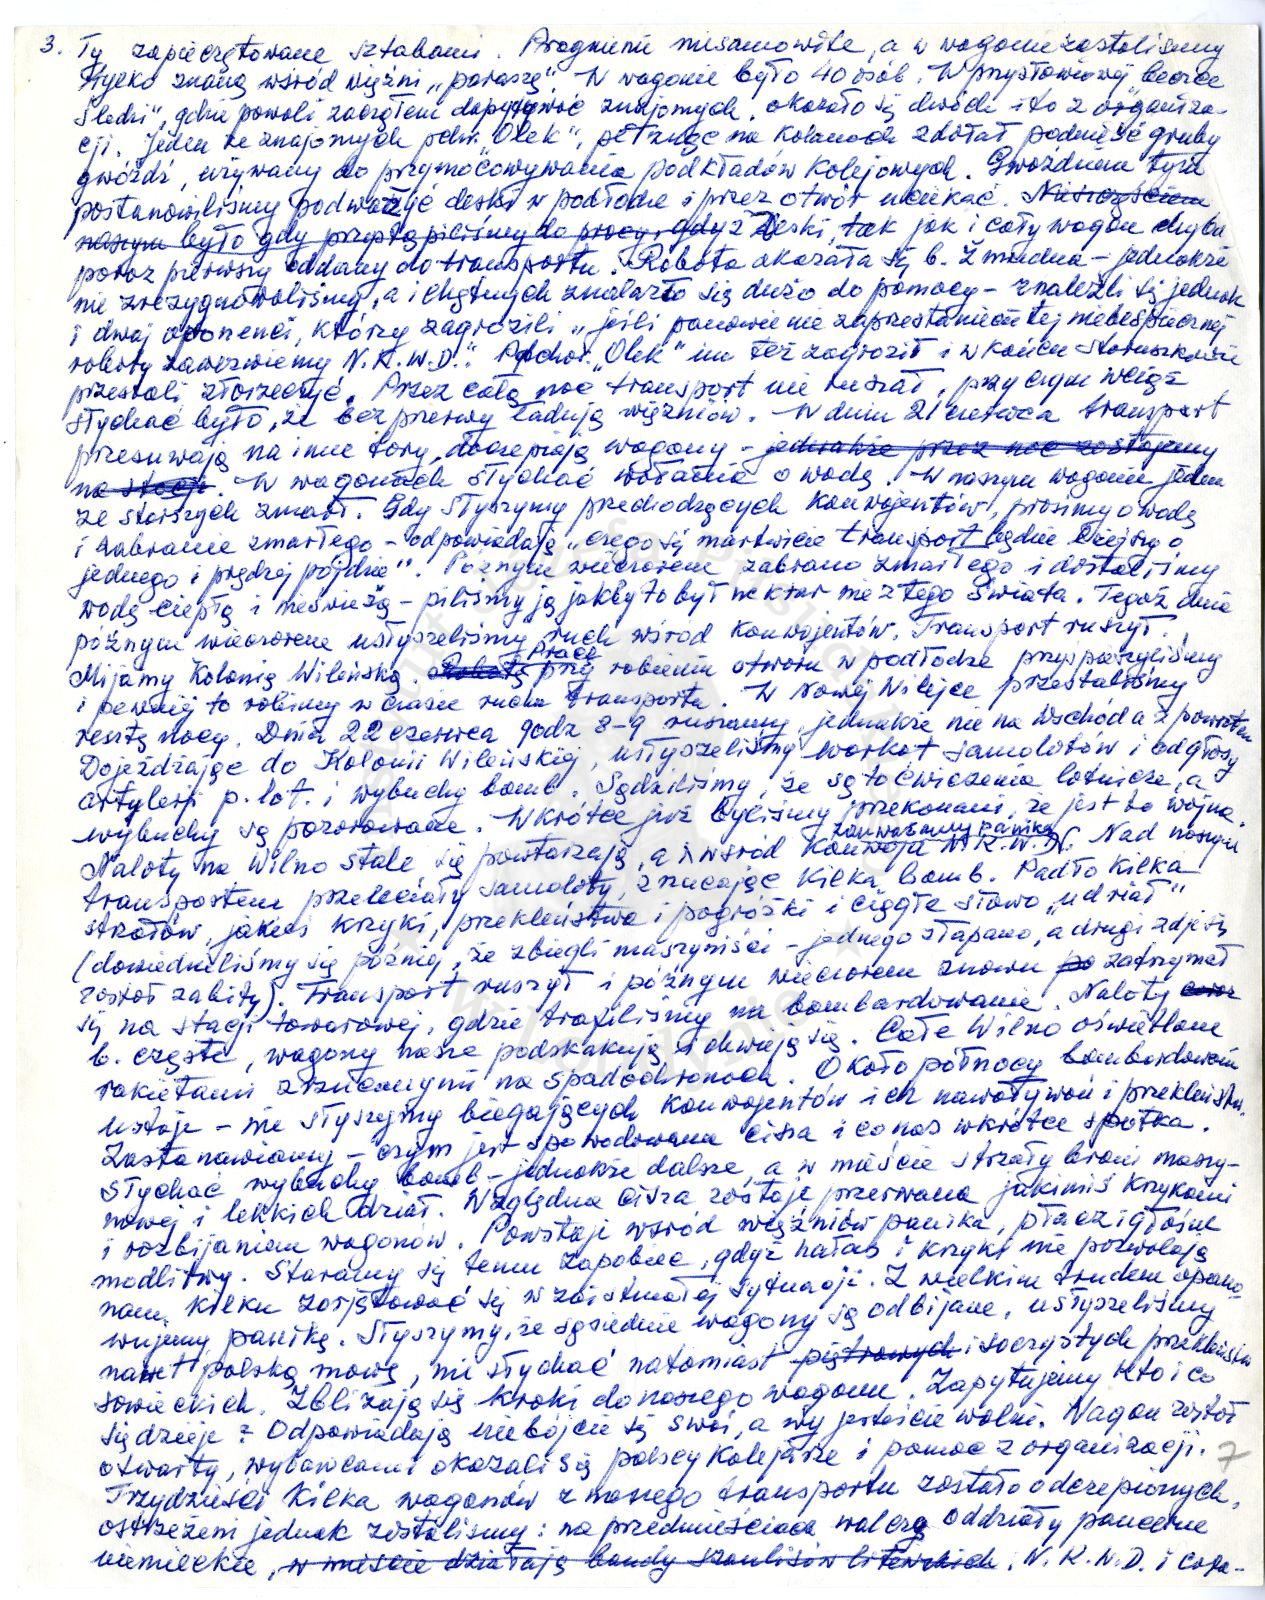 3. ły zapieczętowane sztabami. Pragnienie niesamowite, a w wagonie zastaliśmy
tylko znaną wśród więźni „paraszę”. W wagonie było 40 osób. W przysłowiowej „beczce
śledzi”, gdzie powoli zacząłem dopytywać znajomych. okazało się dwóch i to z organiza-
cji. Jeden ze znajomych pchr. „Olek”, pełznąc na kolanach zdołał podnieść gruby
gwóźdź, używany do przymocowywania podkładów kolejowych. Gwoździem tym
postanowiliśmy podważyć deski w podłodze i przez otwór uciekać. Nieszczęściem
naszym było gdy przystąpiliśmy do pracy, gdyż Deski, tak jak i cały wagon chyba
poraz pierwszy oddany do transportu. Robota okazała się b. żmudna – jednakże
nie zrezygnowaliśmy, a i chętnych znalazło się dużo do pomocy – znaleźli się jednak
i dwaj oponenci, którzy zagrozili „jeśli panowie nie zaprzestaniecie tej niebezpiecznej
roboty zawezwiemy N.K.W.D.”. Pdchor. „Olek” im też zagroził i w końcu staruszkowie
przestali złorzeczyć. Przez całą noc transport nie ruszał, przy czym wciąż
słychać było, że bez przerwy ładują więźniów. W dniu 21 czerwca transport
przesuwają na inne tory, doczepiają wagony – jednakże przez noc zostajemy
na stacji. W wagonach słychać wołania o wodę. W naszym wagonie jeden
ze starszych zmarł. Gdy słyszymy przechodzących konwojentów, prosimy o wodę
i zabranie zmarłego – odpowiadają „czego się martwicie transport będzie lżejszy o
jednego i prędzej pojdzie”. Późnym wieczorem zabrano zmarłego i dostaliśmy
wodę ciepłą i nieświeżą – piliśmy ją jakby to był nektar nie z tego świata. Tegoż dnia
późnym wieczorem usłyszeliśmy ruch wśród konwojentów. Transport ruszył.
Mijamy Kolonię Wileńską. Robotę Pracę przy robieniu otworu w podłodze przyspieszyliśmy
i pewniej to robimy w czasie ruchu transportu. W Nowej Wilejce przestaliśmy
resztę nocy. Dnia 22 czerwca godz 8-9 ruszamy, jednakże nie na wschód a z powrotem
Dojeżdżając do Kolonii Wileńskiej, usłyszeliśmy warkot samolotów i odgłosy
artylerji p.lot. i wybuchy bomb. Sądziliśmy, że są to ćwiczenia lotnicze, a
wybuchy są pozorowane. Wkrótce już byliśmy przekonani, że jest to wojna.
Naloty na Wilno stale się powtarzają, a wśród konwoju N.K.W.D. zauważamy panikę. Nad naszym
transportem przeleciały samoloty, zrzucając kilka bomb. Padło kilka
strzałów, jakieś krzyki, przekleństwa i pogróżki i ciągłe słowo „udrał”
(dowiedzieliśmy się później, że zbiegli maszyniści – jednego złapano, a drugi zdaje się
został zabity). Transport ruszył i późnym wieczorem znowu po zatrzymał
się na stacji towarowej, gdzie trafiliśmy na bombardowanie. Naloty coraz
b. częste, wagony nasze podskakują i chwieją się. Całe Wilno oświetlone
rakietami zrzucanymi na spadochronach. Około północy bombardowanie
ustaje – nie słyszymy biegających konwojentów i ich nawoływań i przekleństw.
Zastanawiamy – czym jest spowodowana cisza i co nas wkrótce spotka.
Słychać wybuchy bomb – jednakże dalsze, a w mieście strzały broni maszy-
nowej i lekkich dział. Względna cisza zostaje przerwana jakimiś krzykami
i rozbijaniem wagonów. Powstaje wśród więźniów panika, płacz i głośne
modlitwy. Staramy się temu zapobiec, gdyż hałas i krzyki nie pozwalają
nam kilku zorjętować się w zaistniałej sytuacji. Z wielkim trudem opano-
wujemy panikę. Słyszymy, że sąsiednie wagony są odbijane, usłyszeliśmy
nawet polską mowę, nie słychać natomiast piętrowych i soczystych przekleństw
sowieckich. Zbliżają się kroki do naszego wagonu. Zapytujemy kto i co
się dzieje? Odpowiadają nie bójcie się swoi, a wy jesteście wolni. Wagon został
otwarty, wybawcami okazali się polscy kolejarze i pomoc z organizacji. 7
Trzydzieści kilka wagonów z naszego transportu zostało odczepionych,
ostrzeżeni jednak zostaliśmy: na przedmieściach walczą oddziały pancerne
niemieckie, w mieście działają bandy szaulisów litewskich. N.K.W.D. i cofa-